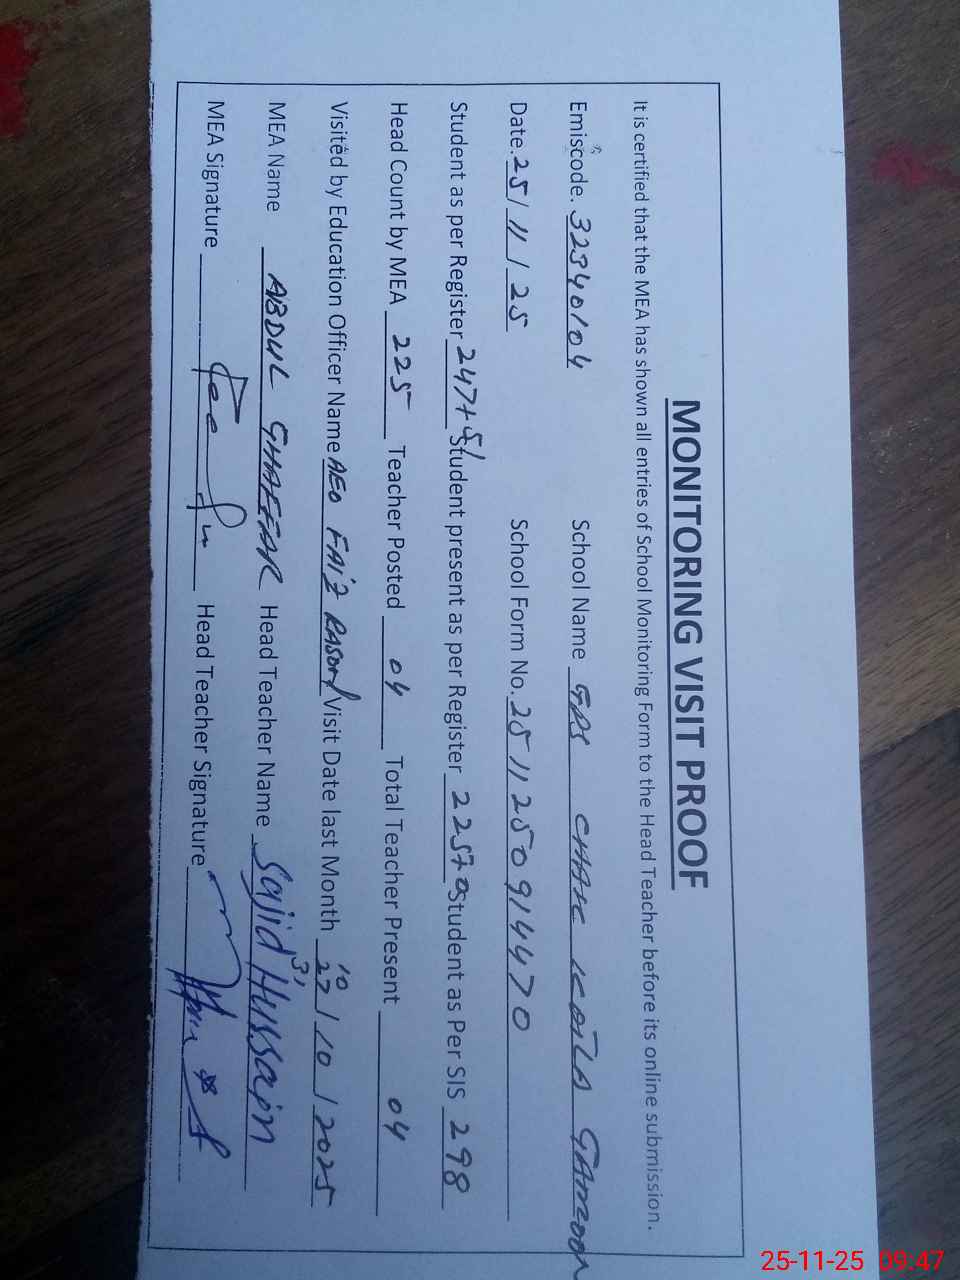 MONITORING VISIT PROOF
It is certified that the MEA has shown all entries of School Monitoring Form to the Head Teacher before its online submission.
Emiscode. 32340104 School Name GPS CHAK KOILA GAMOON
Date. 25/11/25 School Form No. 25112509 14470
Student as per Register 247+51 Student present as per Register 225+0 Student as Per SIS 298
Head Count by MEA 225 Teacher Posted 04 Total Teacher Present 04
Visited by Education Officer Name AEO FAIZ RASOOL Visit Date last Month 27/10/2025
MEA Name ABDUL GHAFFAR Head Teacher Name Sajid Hussain
MEA Signature Head Teacher Signature
25-11-25 09:47